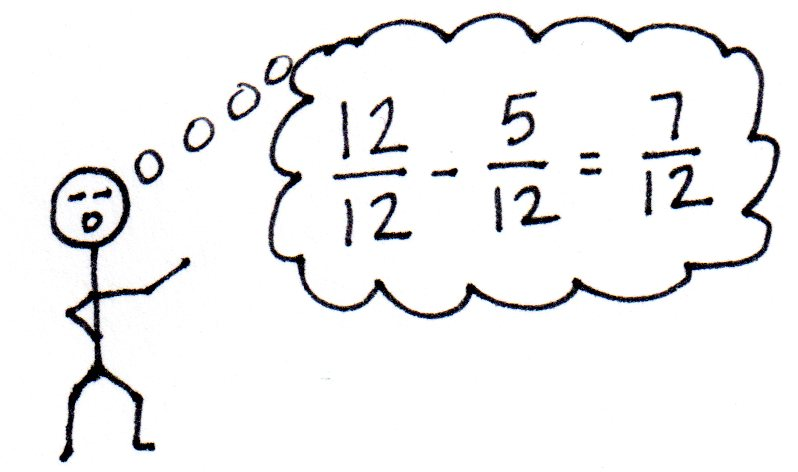 12/12 - 5/12 = 7/12